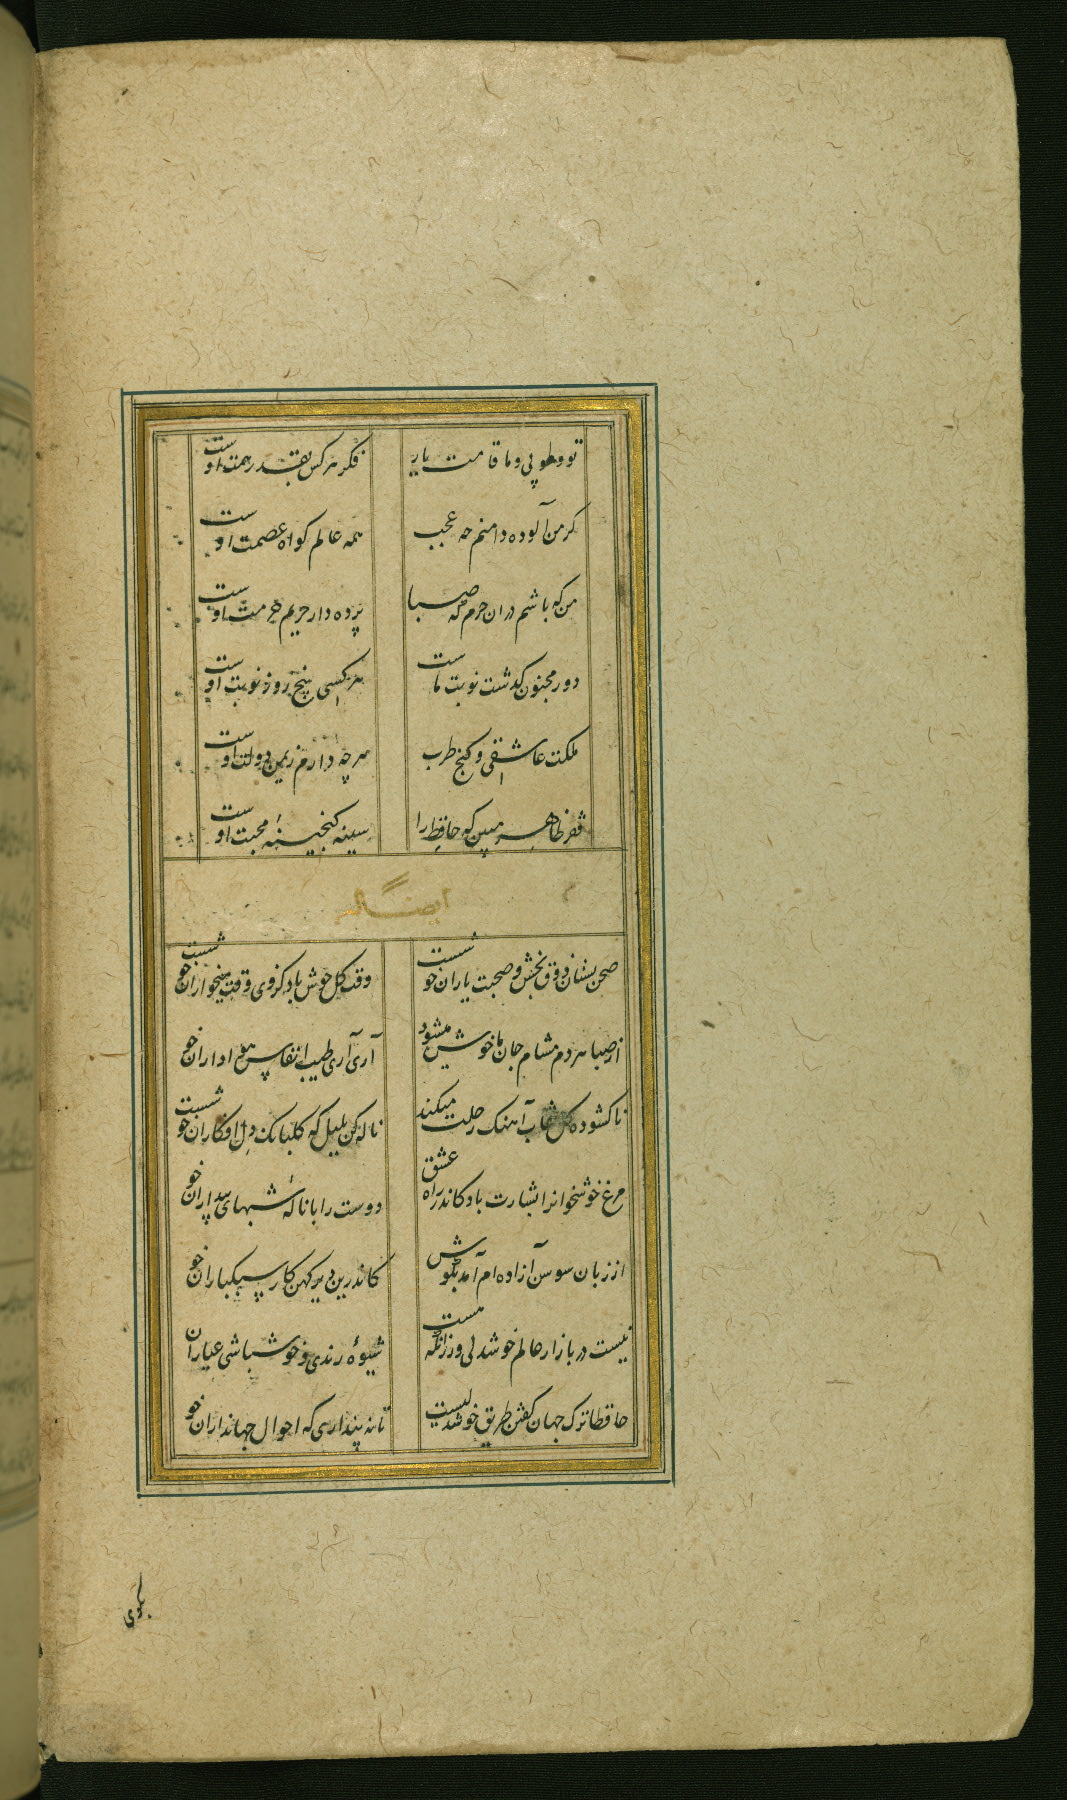 تو و طوبی و ما و قامت یار
فکر هر کس بقدر همت اوست
کر من آلوده دامنم چه عجب
همه عالم کواه عصمت اوست
من که باشم در ان حرم که صبا
پرده دار حریم حرمت اوست
دور مجنون کذشت نوبت ماست
هر کسی پنج روزه نوبت اوست
ملکت عاشقی و کنج طرب
هر چه دارم ز یمن دولت اوست
فقر ظاهر مبین که حافظ را
سینه کنجینهٔ محبت اوست
ایضاً له
صحن بستان ذوق بخش و صحبت یاران خوشست
وقت کل خوش باد کز وی وقت میخواران خوشست
از صبا هر دم مشام جان ما خوش میشود
آری آری طیب انفاس هواداران خو
ناکشوده کل نقاب آهنک رحلت میکند
ناله کن بلبل که کلبانک دل افکاران خوشست
مرغ خوشخوانرا بشارت باد کاندر راه عشق
دوست را با نالهٔ شبهای بیداران خو
از زبان سوسن آزاده ام آمد بکوش
کاندرین دیر کهن کار سبکباران خو
نیست در بازار عالم خوشدلی ور زانکه هست
شیوهٔ رندی و خوشباشی عیاران
حافظا ترک جهان کفتن طریق خوشدلیست
تا نه پنداری که احوال جهانداران خو
بکوی